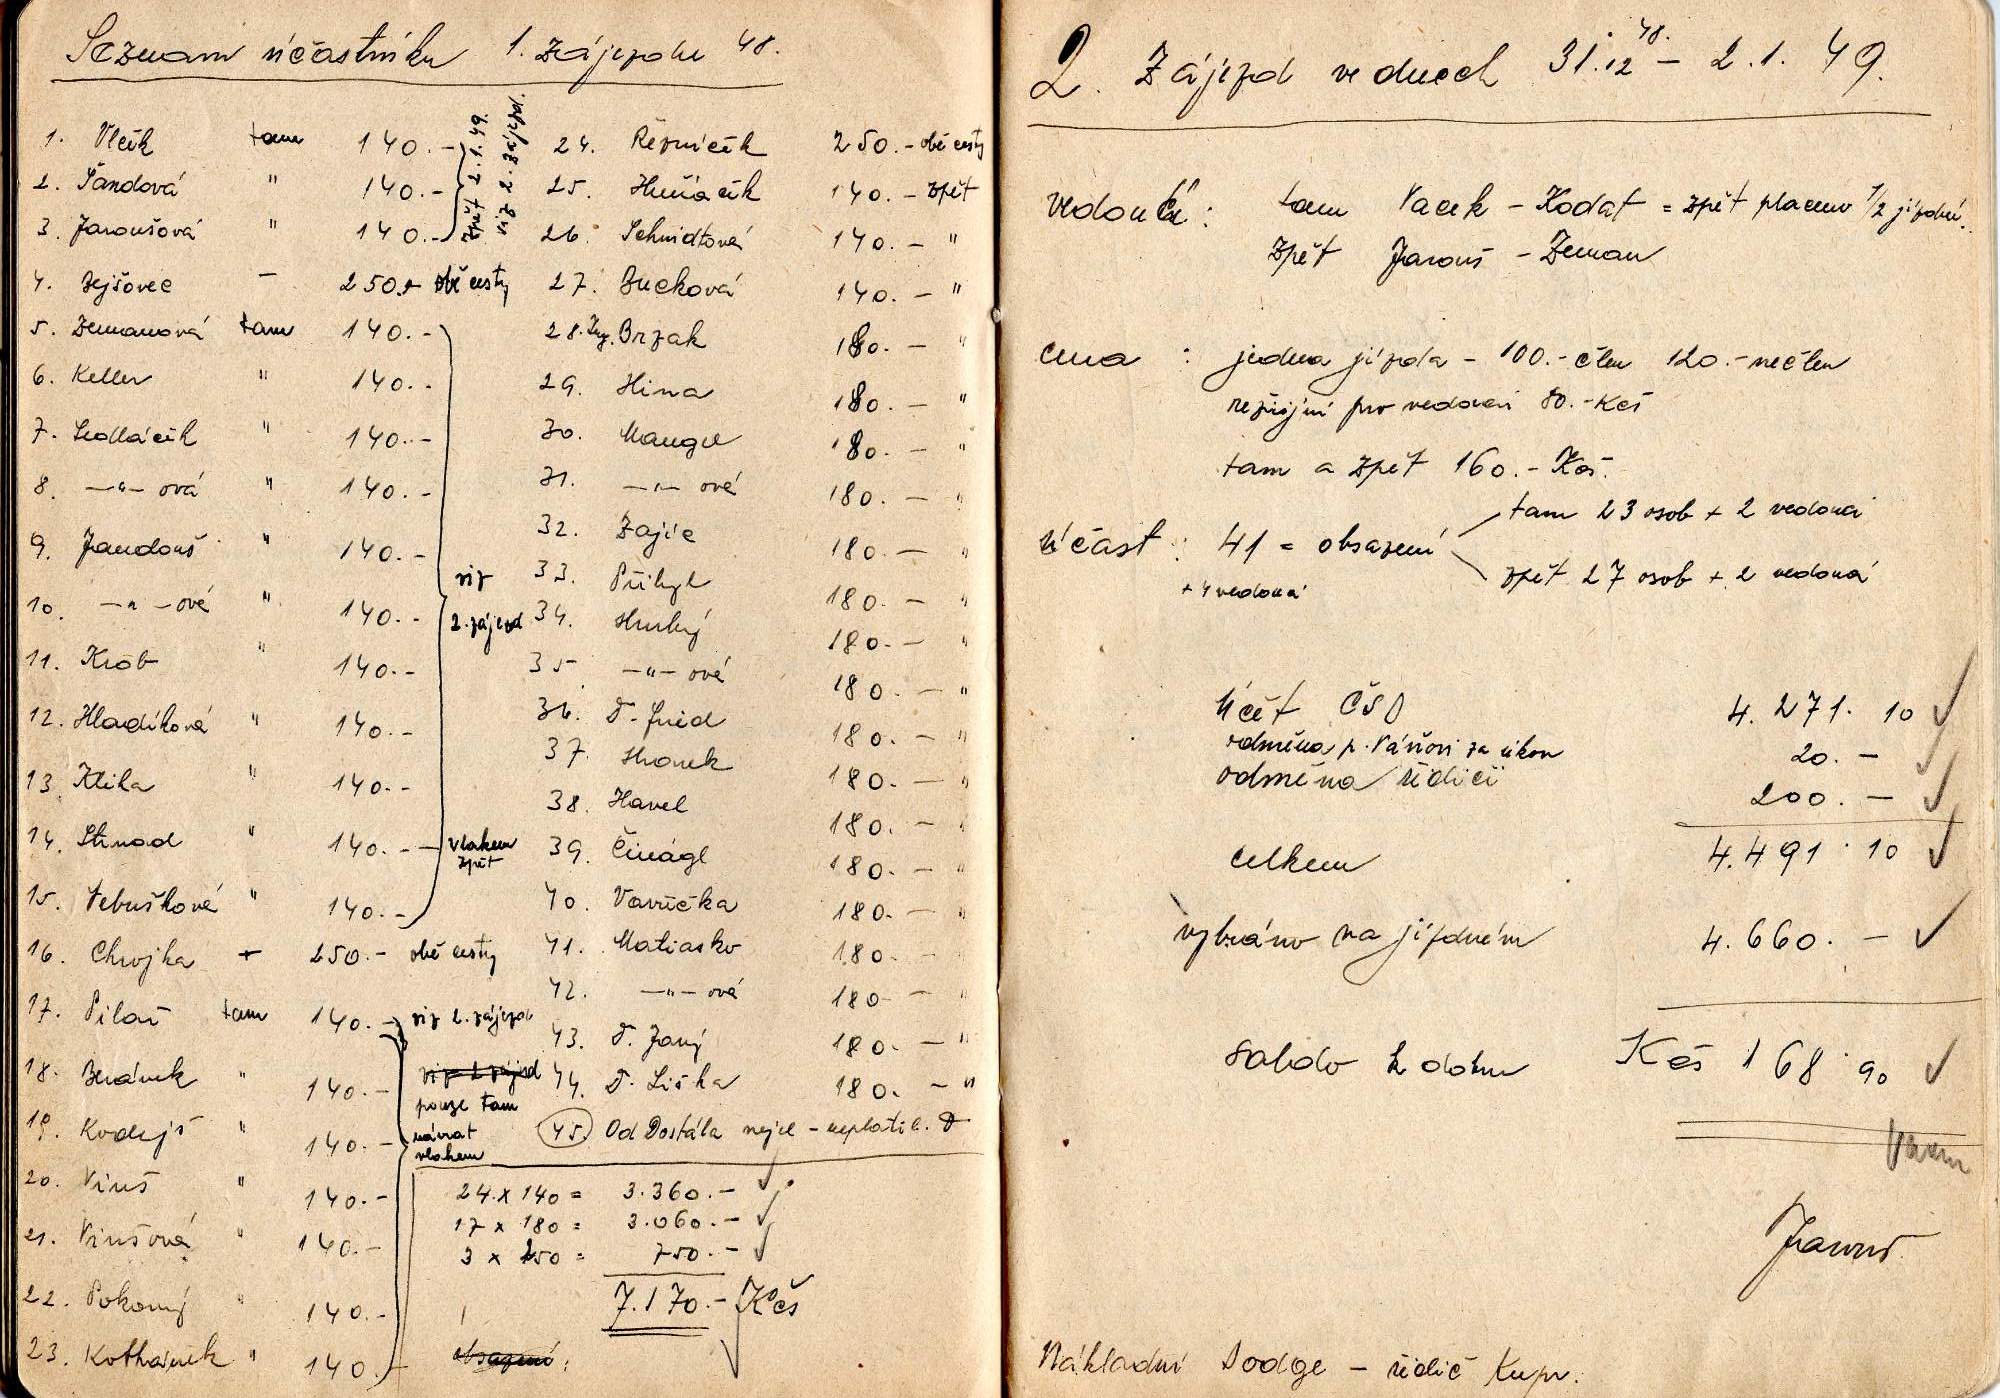 Seznam účastníků 1. zájezdu 48.
1. Vlčik tam 140.-
2. Šandová " 140.-
3. Jaroušová " 140.-
zpět 2.1.49.
viz 2. zájezd.
4. Bejšovec - 250.- obě cesty
5. Zemanová tam 140.-
6. Keller " 140.-
7. Sedláček " 140.-
8. -"- ová " 140.-
9. Jandouš " 140.-
10. -"- ové " 140.-
11. Krob " 140.-
12. Hladíková " 140.-
13. Klika " 140.-
viz
2. zájezd
14. Strnad " 140.- - vlakem
zpět
15. Vebušková " 140.-
16. Chvojka - 250.- obě cesty
17. Pilař tam 140.- viz 2. zájezd
18. Beránek " 140.-
19. Kodejš " 140.-
20. Viruš " 140.-
21. Virušová " 140.-
22. Pokorný " 140.-
23. Kothánek " 140.-
viz 2 zájezd
pouze tam
návrat
vlakem
24. Řezníček 250.- obě cesty
25. Huňáček 140.- zpět
26. Schmidtová 140.- "
27. Zucková 140.- "
28. Ing. Brzak 180.- "
29. Hina 180.- "
30. Mangel 180.- "
31. -"- ové 180.- "
32. Zajíc 180.- "
33. Přibyl 180.- "
34. Hrubý 180.- "
35 -"- ové 180.- "
36. D. Fried 180.- "
37. Hronek 180.- "
38. Havel 180.- "
39. Činágl 180.- "
40. Vavřička 180.- "
41. Matiasko 180.- "
42. -"- ová 180.- "
43. D. Janý 180.- "
44. D. Liška 180.- "
45. Od Dostála nejel - neplatil.
24 x 140 = 3.360.-
17 x 180 = 3.060.-
3 x 250 = 750.-
7.170.- Kčs
obsazení:
2. Zájezd ve dnech 31.12 48. - 2.1. 49.
vedoucí: tam Vacek - Kodat = zpět placeno 1/2 jízdné.
zpět Jarouš - Zeman
cena : jedna jízda - 100.- člen 120.- nečlen
režijní pro vedoucí 80.- Kčs
tam a zpět 160.- Kčs.
účast : 41 = obsazení
+ 4 vedoucí
tam 23 osob + 2 vedoucí
zpět 27 osob + 2 vedoucí
Účet ČSD 4.271.10
odměna p. Vášovi za úkon 20.-
odměna řidiči 200.-
celkem 4.491.10
vybráno na jízdném 4.660.-
saldo k dobru Kčs 168.90
Jarouš
Nákladní Dodge - řidič Kupr.